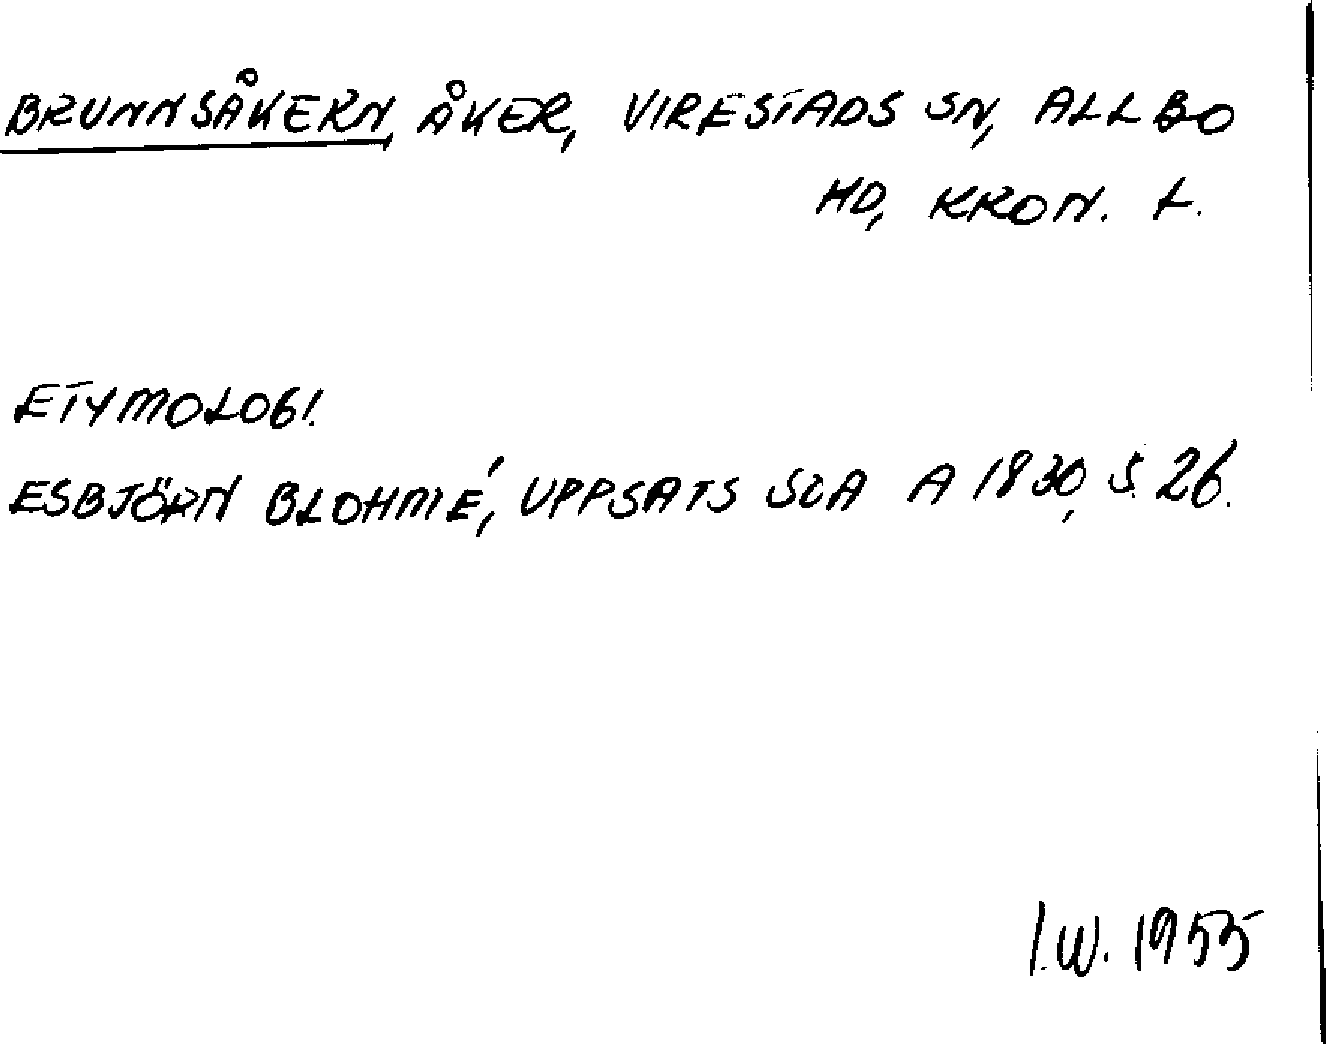 BRUNNSÅKERN, ÅKER, VIRESTADS SN, ALLBO
HD, KRON. L.
ETYMOLOGI.
ESBJÖRN BLOHMÉ, UPPSATS SOA A 1830, S. 26.
I.W. 1955